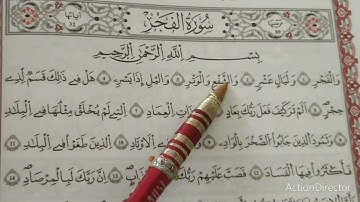 سُورَةُ الْفَجْرِ
بِسْمِ اللَّهِ الرَّحْمَٰنِ الرَّحِيمِ
وَالْفَجْرِ ١ وَلَيَالٍ عَشْرٍ ٢ وَالشَّفْعِ وَالْوَتْرِ ٣ وَالَّيْلِ إِذَا يَسْرِ ٤ هَلْ فِي ذَٰلِكَ قَسَمٌ لِّذِي
حِجْرٍ ٥ أَلَمْ تَرَ كَيْفَ فَعَلَ رَبُّكَ بِعَادٍ الْعِمَادِ الَّتِي لَمْ يُخْلَقْ مِثْلُهَا فِي الْبِلَادِ
وَثَمُودَ الَّذِينَ جَابُوا الصَّخْرَ بِالْوَادِ الْأَوْتَادِ الَّذِينَ طَغَوْا فِي الْبِلَادِ
فَأَكْثَرُوا فِيهَا الْفَسَادَ فَصَبَّ عَلَيْهِمْ رَبُّكَ عَذَابٍ إِنَّ رَبَّكَ لَبِالْمِرْصَادِ
ActionDirector